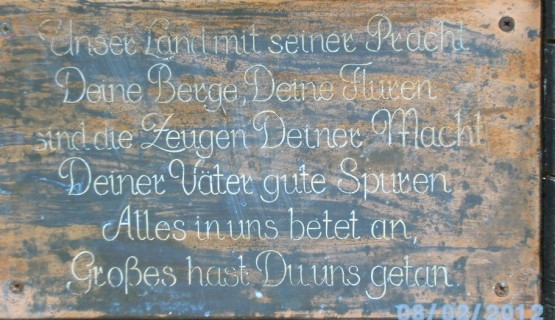 Unser Land mit seiner Pracht
Deine Berge, Deine Fluren
sind die Zeugen Deiner Macht
Deiner Väter gute Spuren
Alles in uns betet an,
Großes hast Du uns getan.
08/08/2012